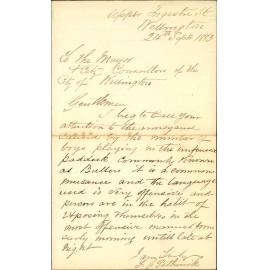 Upper Ingestre St
Wellington
24th Sept 1893
To the Mayor
& City Councillors of the
City of Wellington
Gentlemen
I beg to call your
attention to the annoyance
caused by the number of
boys playing in the unfenced
paddock commonly known
as Bullers it is a common
nuisance and the language
used is very offensive and
persons are in the habit of
exposing themselves in the
most offensive manner from
early morning untill late at
night
I am Sirs